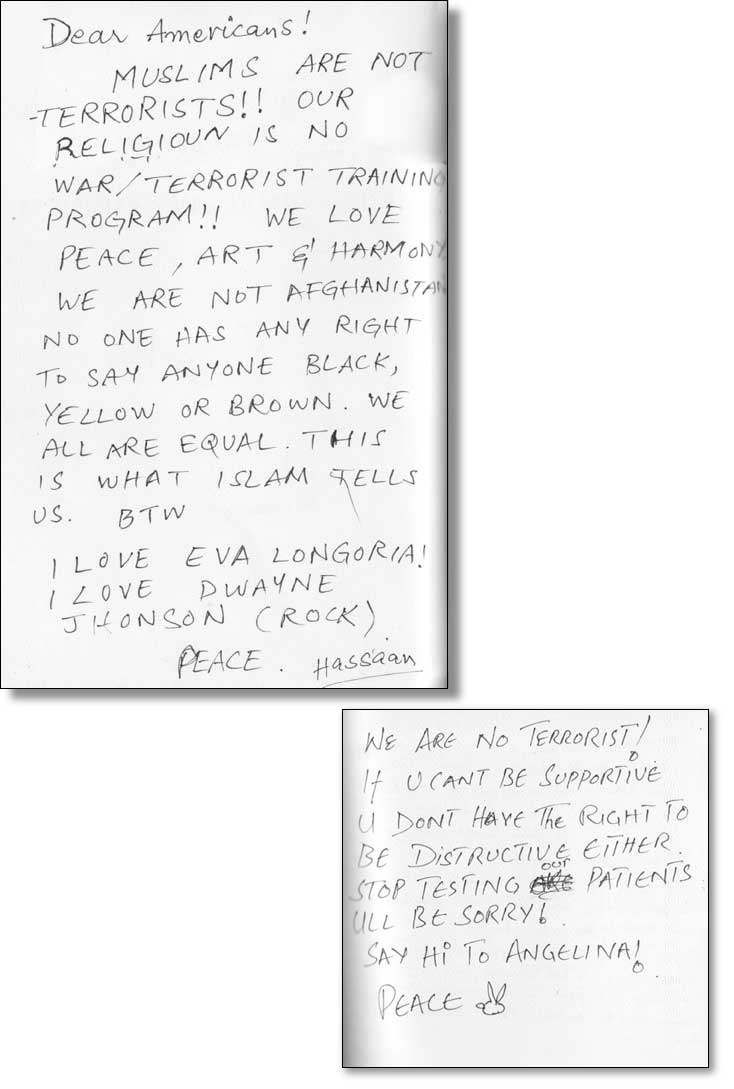 Dear Americans!
MUSLIMS ARE NOT
TERRORISTS!! OUR
RELIGIOUN IS NO
WAR/TERRORIST TRAINING
PROGRAM!! WE LOVE
PEACE, ART & HARMONY
WE ARE NOT AFGHANISTAN
NO ONE HAS ANY RIGHT
TO SAY ANYONE BLACK,
YELLOW OR BROWN. WE
ALL ARE EQUAL. THIS
IS WHAT ISLAM TELLS
US. BTW
I LOVE EVA LONGORIA!
I LOVE DWAYNE
JHONSON (ROCK)
PEACE. Hassaan
WE ARE NO TERRORIST!
If U CANT BE SUPPORTIVE
U DONT HAVE The RIGHT TO
BE DISTRUCTIVE EITHER.
STOP TESTING OUR PATIENTS
ULL BE SORRY!
SAY Hi TO ANGELINA!
PEACE